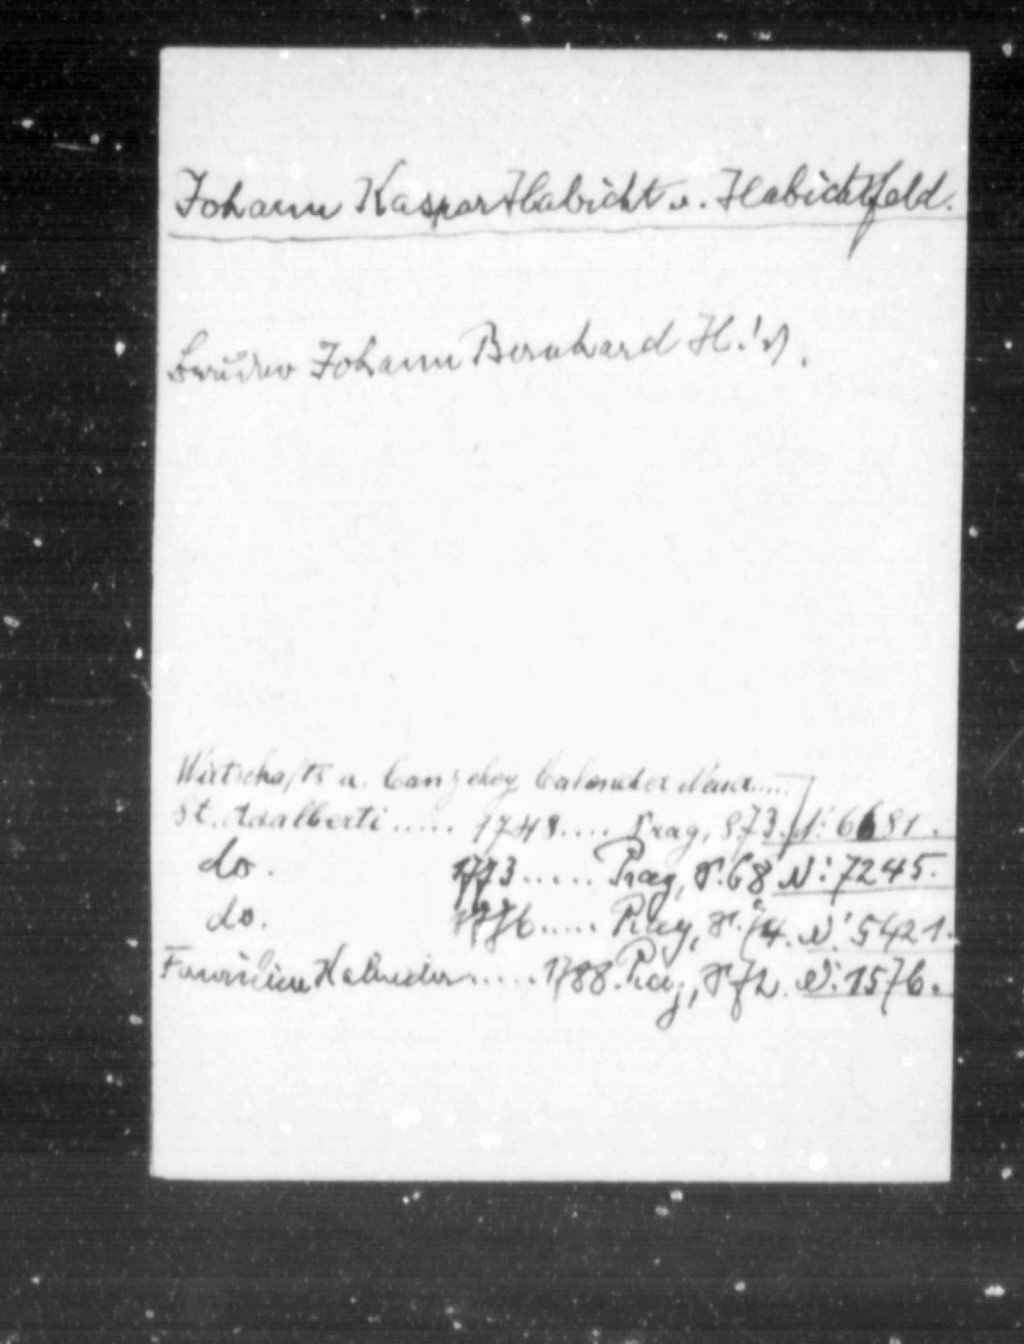 Johann Kaspar Habicht v. Habichtsfeld.
Bruder Johann Bernhard H.!
Wirtschafts u. Canzeley Calender
St. Adalberti ..... 1748.... Prag, S73. N: 6681.
do. 1773..... Prag, S.68 N: 7245.
do. 1776..... Prag, S. 74. N: 5421.
Familien Kalender ..... 1788. Prag, S 72. N: 1576.